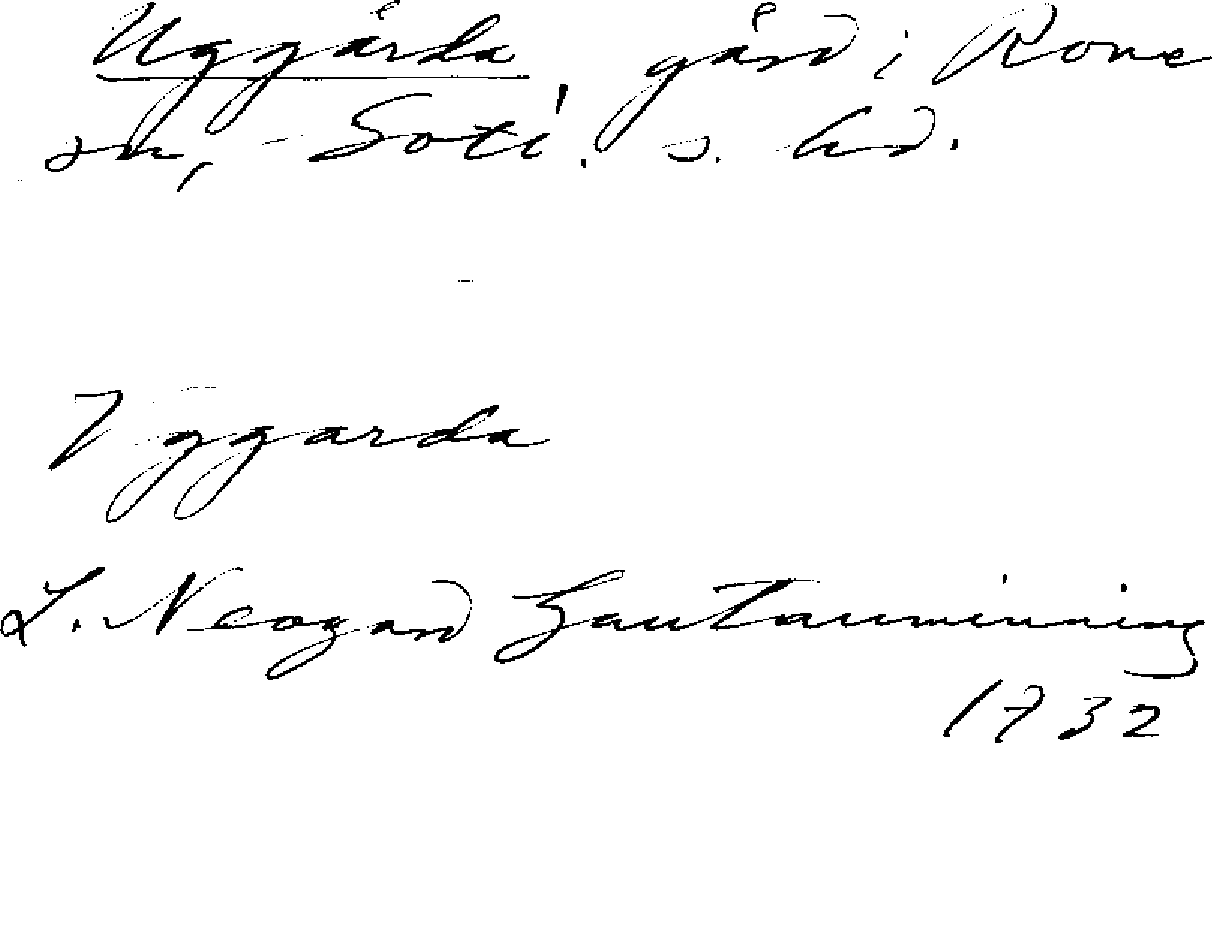 Uggårda gård i Rone
sn, Gotl. s. hd.
Vggarda
L. Neogard Gautauminning
1732